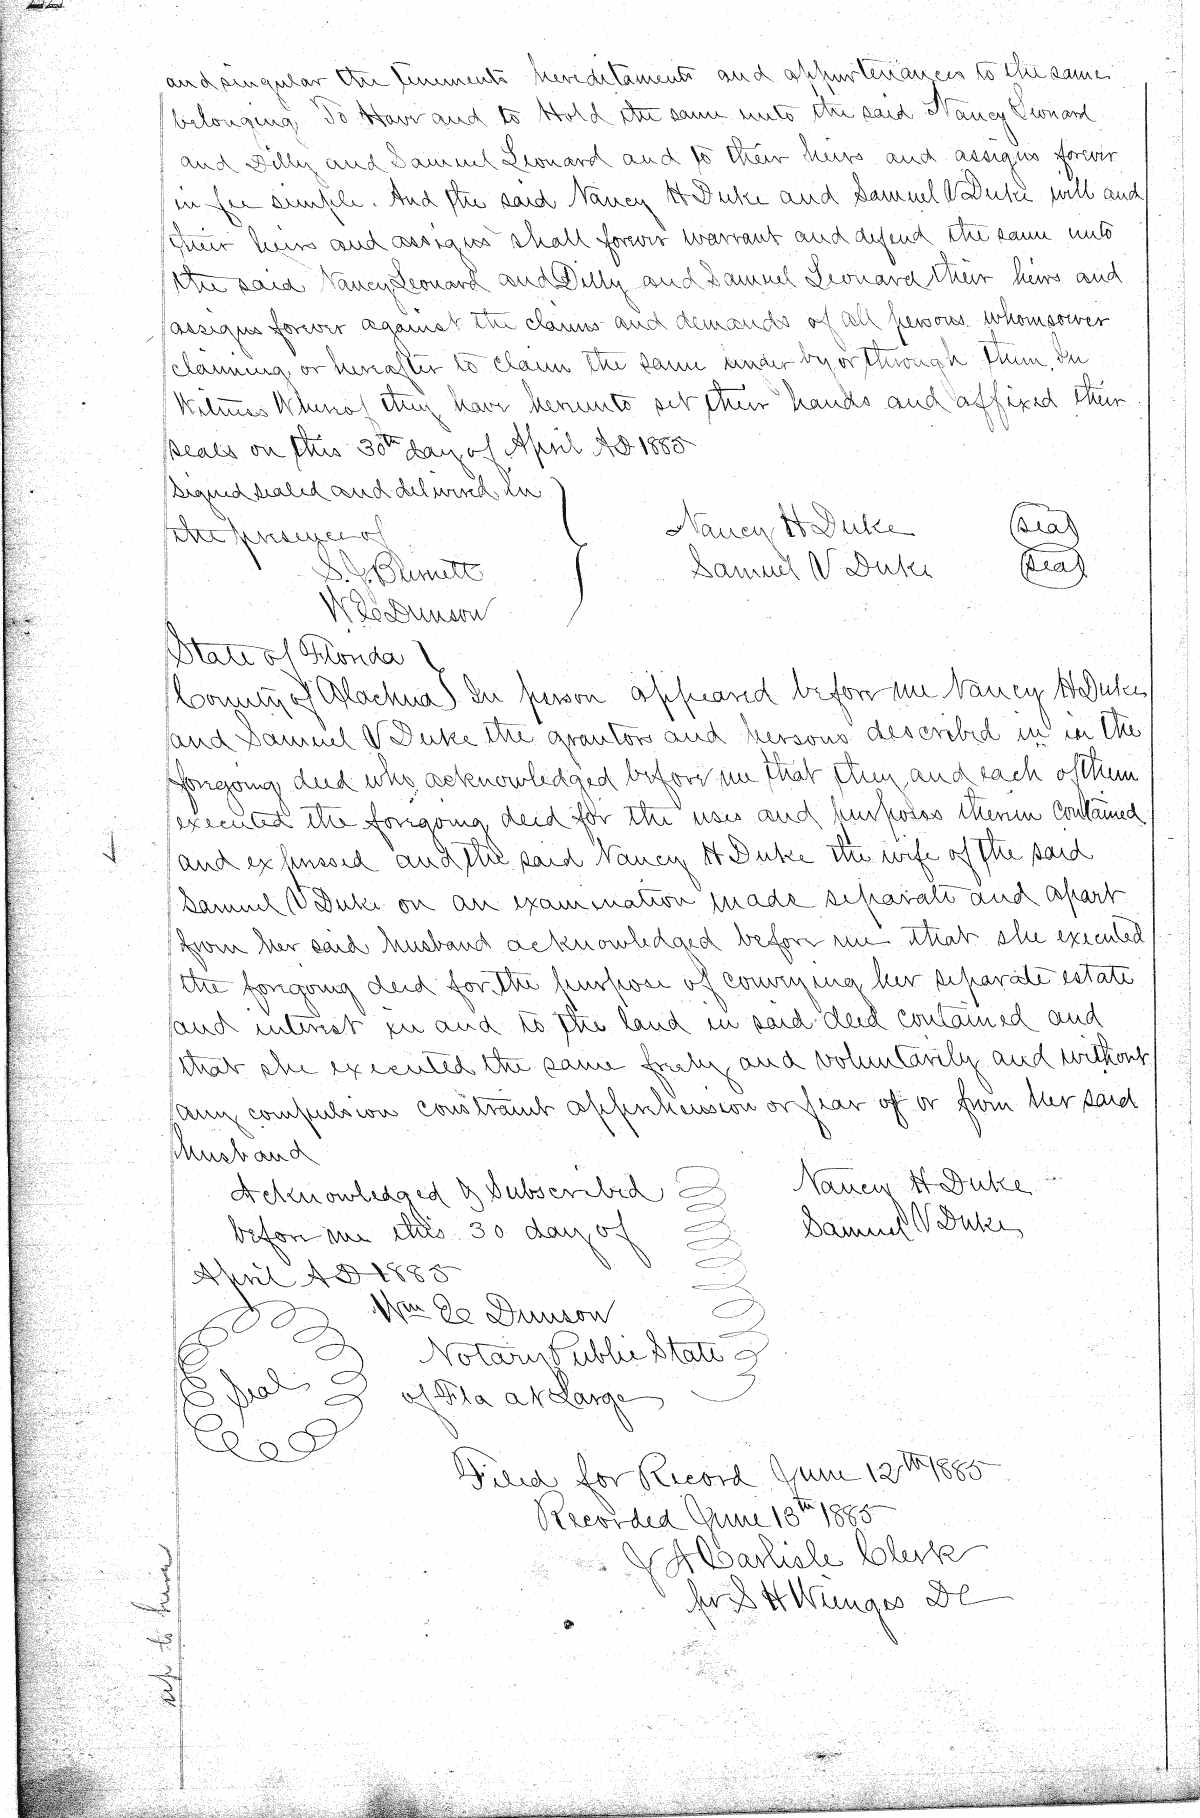 and singular the tenements hereditaments and appurtenances to the same
belonging To Have and to Hold the same unto the said Nancy Leonard
and Dilly and Samuel Leonard and to their heirs and assigns forever
in fee simple. And the said Nancy H Duke and Samuel V Duke will and
their heirs and assigns shall forever warrant and defend the same unto
the said Nancy Leonard and Dilly and Samuel Leonard their heirs and
assigns forever against the claims and demands of all persons whomsoever
claiming or hereafter to claim the same under by or through them. In
Witness Whereof they have hereunto set their hands and affixed their
seals on this 30th day of April AD 1885
Signed sealed and delivered in
the presence of
Nancy H Duke (seal)
S. J. Burnett
Samuel V Duke (seal)
Wm Dunson
State of Florida
County of Alachua } In person appeared before me Nancy H Duke
and Samuel V Duke the grantors and persons described in in the
foregoing deed who acknowledged before me that they and each of them
executed the foregoing deed for the uses and purposes therein contained
and expressed and the said Nancy H Duke the wife of the said
Samuel V Duke on an examination made separate and apart
from her said husband acknowledged before me that she executed
the foregoing deed for the purpose of conveying her separate estate
and interest in and to the land in said deed contained and
that she executed the same freely and voluntarily and without
any compulsion constraint apprehension or fear of or from her said
husband
Acknowledged & Subscribed
Nancy H Duke
before me this 30 day of
Samuel V Duke
April AD 1885
Wm Dunson
Notary Public State
Seal
of Fla at Large
Filed for Record June 12th 1885
Recorded June 13th 1885
J A Carlisle Clerk
pr S H Wienges DC
up to here